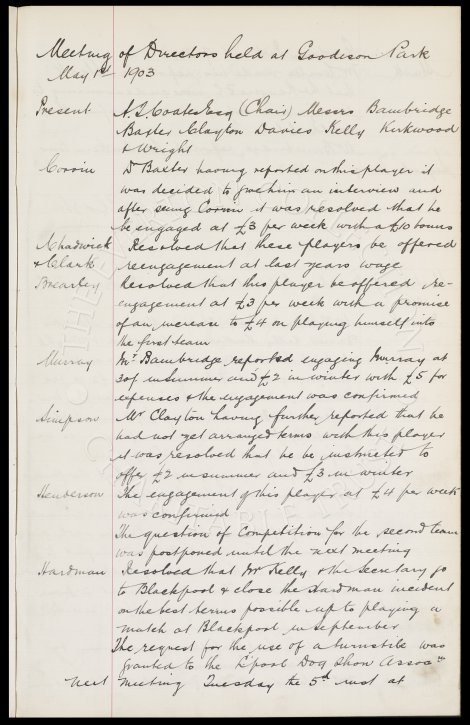 Meeting of Directors held at Goodison Park
May 1st 1903
Present A. T. Coates Esq (Chair) Messrs Bainbridge
Baxter Clayton Davies Kelly Kirkwood
& Wright
Corrin Dr Baxter having reported on this player it
was decided to give him an interview and
after seeing Corrin it was resolved that he
be engaged at £3 per week with a £10 bonus
Chadwick Resolved that these players be offered
& Clark reengagement at last years wage
Brearley Resolved that this player be offered re-
engagement at £3 per week with a promise
of an increase to £4 on playing himself into
the first team
Murray Mr Bainbridge reported engaging Murray at
30/ in summer and £2 in winter with £5 for
expenses & the engagement was confirmed
Simpson Mr Clayton having further reported that he
had not yet arranged terms with this player
it was resolved that he be instructed to
offer £2 in summer and £3 in winter
Henderson The engagement of this player at £4 per week
was confirmed
The question of Competition for the second team
was postponed until the next meeting
Hardman Resolved that Mr Kelly & the Secretary go
to Blackpool & close the Hardman incident
on the best terms possible up to playing a
match at Blackpool in September
The request for the use of a turnstile was
granted to the L'pool Dog Show Assoctn
Next meeting Tuesday the 5th inst at